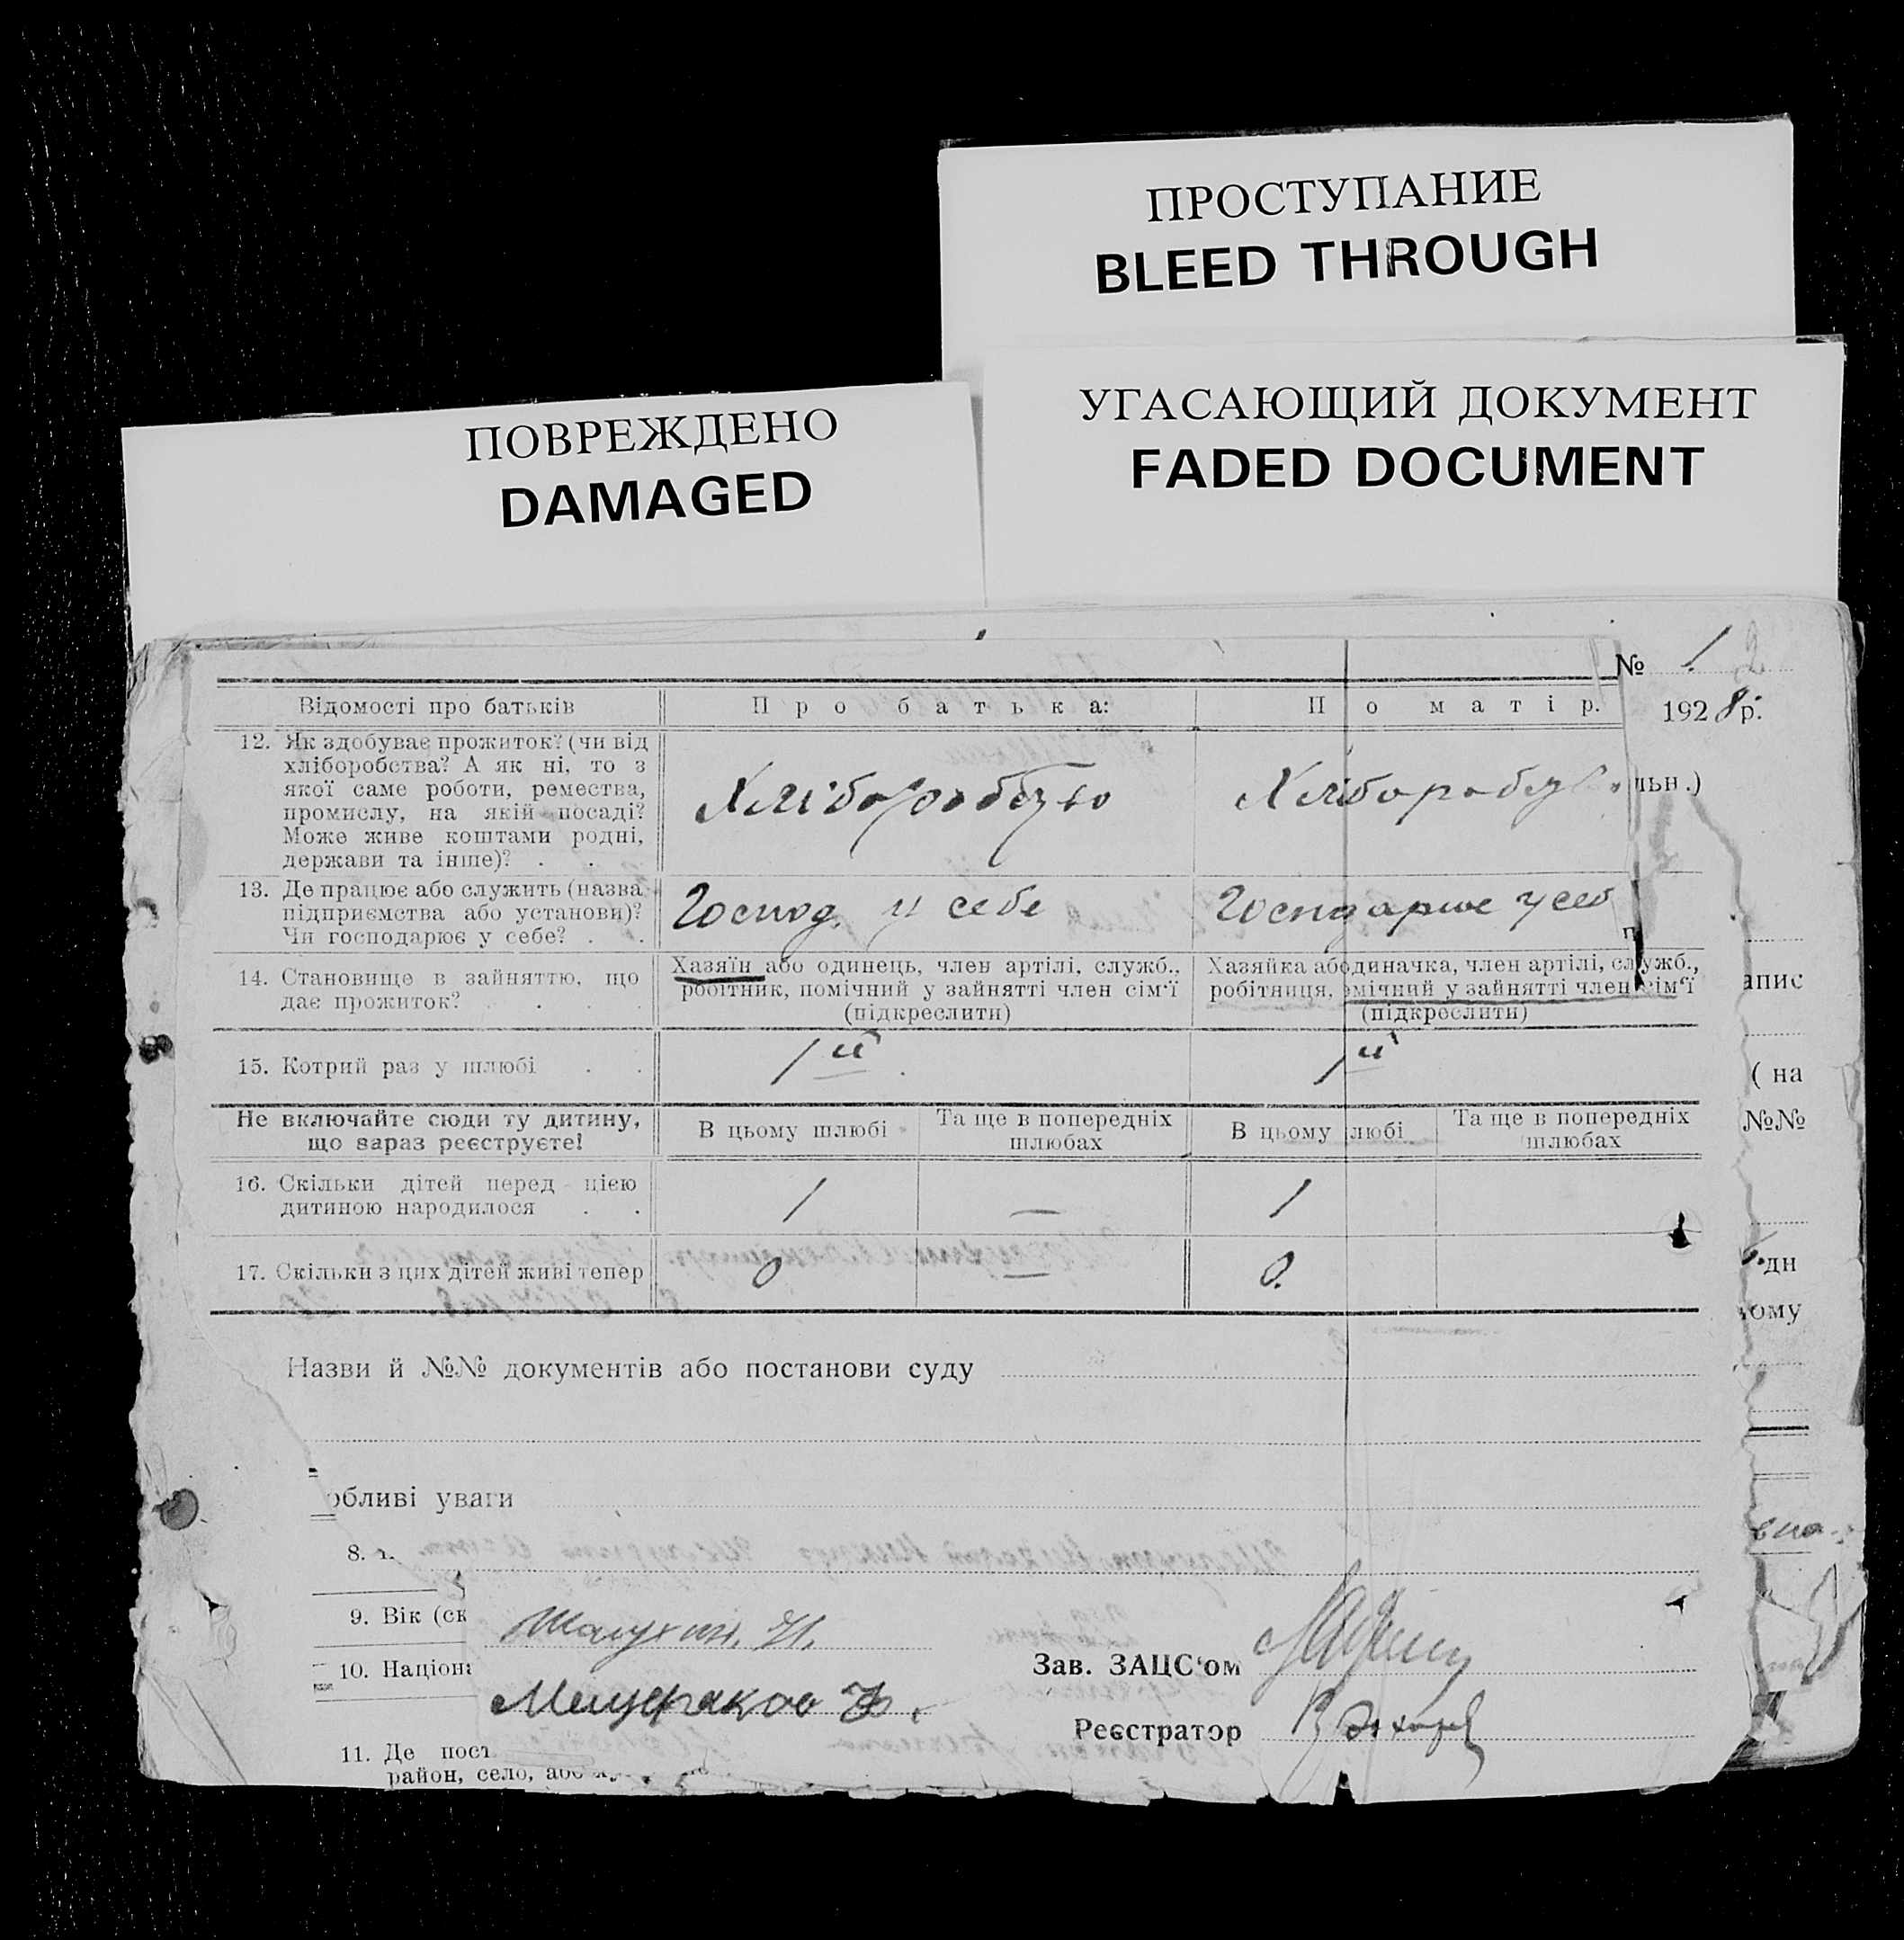 ПРОСТУПАНИЕ
BLEED THROUGH
УГАСАЮЩИЙ ДОКУМЕНТ
FADED DOCUMENT
ПОВРЕЖДЕНО
DAMAGED
№ 1 2
1928 р.
льн.)
Відомості про батьків
Про батька:
П о матір.
12. Як здобуває прожиток? (чи від
хліборобства? А як ні, то з
якої саме роботи, ремества,
промислу, на якій посаді?
Може живе коштами родні,
держави та інше)? . .
Хліборобсую
Хлібороб
13. Де працює або служить (назва
підприємства або установи)?
Чи господарює у себе? . .
Господ. у себе
Господарює у себ
14. Становище в зайняттю, що
дає прожиток? . . .
Хазяїн або одинець, член артілі, служб.,
робітник, помічний у зайнятті член сім'ї
(підкреслити)
Хазяйка або диначка, член артілі, служб.,
робітниця, омічний у зайнятті член сім'ї
(підкреслити)
апис
15. Котрий раз у шлюбі . .
1й
1й
( на
Не включайте сюди ту дитину,
що зараз реєструєте!
В цьому шлюбі
Та ще в попередніх
шлюбах
В цьому любі
Та ще в попередніх
шлюбах
№№
16. Скільки дітей перед цією
дитиною народилося . .
1
—
1
17. Скільки з цих дітей живі тепер
0
—
0.
дн
ому
Назви й №№ документів або постанови суду
обливі уваги
8.
9. Вік (ск
10. Націона
11. Де пост
район, село, або
Шалухин. И.
Мещеряков Ф.
Зав. ЗАЦС'ом
Реєстратор